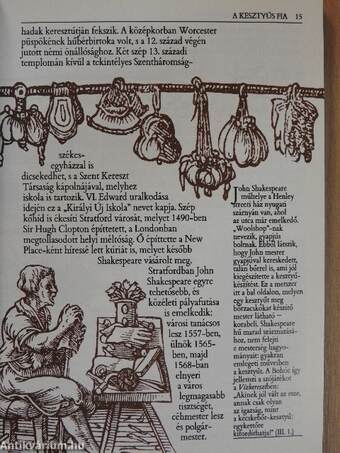 A KESZTYŰS FIA 15
hadak keresztútján fekszik. A középkorban Worcester
püspökének hűbérbirtoka volt, s a 12. század végén
jutott némi önállósághoz. Két szép 13. századi
templomán kívül a tekintélyes Szentháromság-
székes-
egyházzal is
dicsekedhet, s a Szent Kereszt
Társaság kápolnájával, melyhez
iskola is tartozik. VI. Edward uralkodása
idején ez a „Királyi Új Iskola” nevet kapja. Szép
kőhíd is ékesíti Stratford városát, melyet 1490-ben
Sir Hugh Clopton építtetett, a Londonban
megtollasodott helyi méltóság. Ő építtette a New
Place-ként híressé lett kúriát is, melyet később
Shakespeare vásárolt meg.
Stratfordban John
Shakespeare egyre
tehetősebb, és
közéleti pályafutása
is emelkedik:
városi tanácsos
lesz 1557-ben,
ülnök 1565-
ben, majd
1568-ban
elnyeri
a város
legmagasabb
tisztségét,
céhmester lesz
és polgár-
mester.
John Shakespeare
műhelye a Henley
streeti ház nyugati
szárnyán van, ahol
az utca már emelkedő.
„Woolshop”-nak
nevezik, gyapjú-
boltnak. Ebből látszik,
hogy John mester
gyapjúval kereskedett,
talán bőrrel is, ami jól
kiegészítette a kesztyű-
készítést. Ez a metszet
itt a bal oldalon, melyen
egy kesztyűt meg
bőrzacskókat készítő
mester látható —
korabeli. Shakespeare
hű marad származásá-
hoz, nem felejti
e mesterség hagyo-
mányait: gyakran
emlegeti műveiben
a kesztyűt. A Bohóc így
jellemzi a szójátékot
a Vízkeresztben:
„Akinek jól vált az esze,
annak csak olyan
az igazság, mint
a kecskebőr-kesztyű:
egykettőre
kifordíthatja!” (III. 1.)
Antikvárium.hu